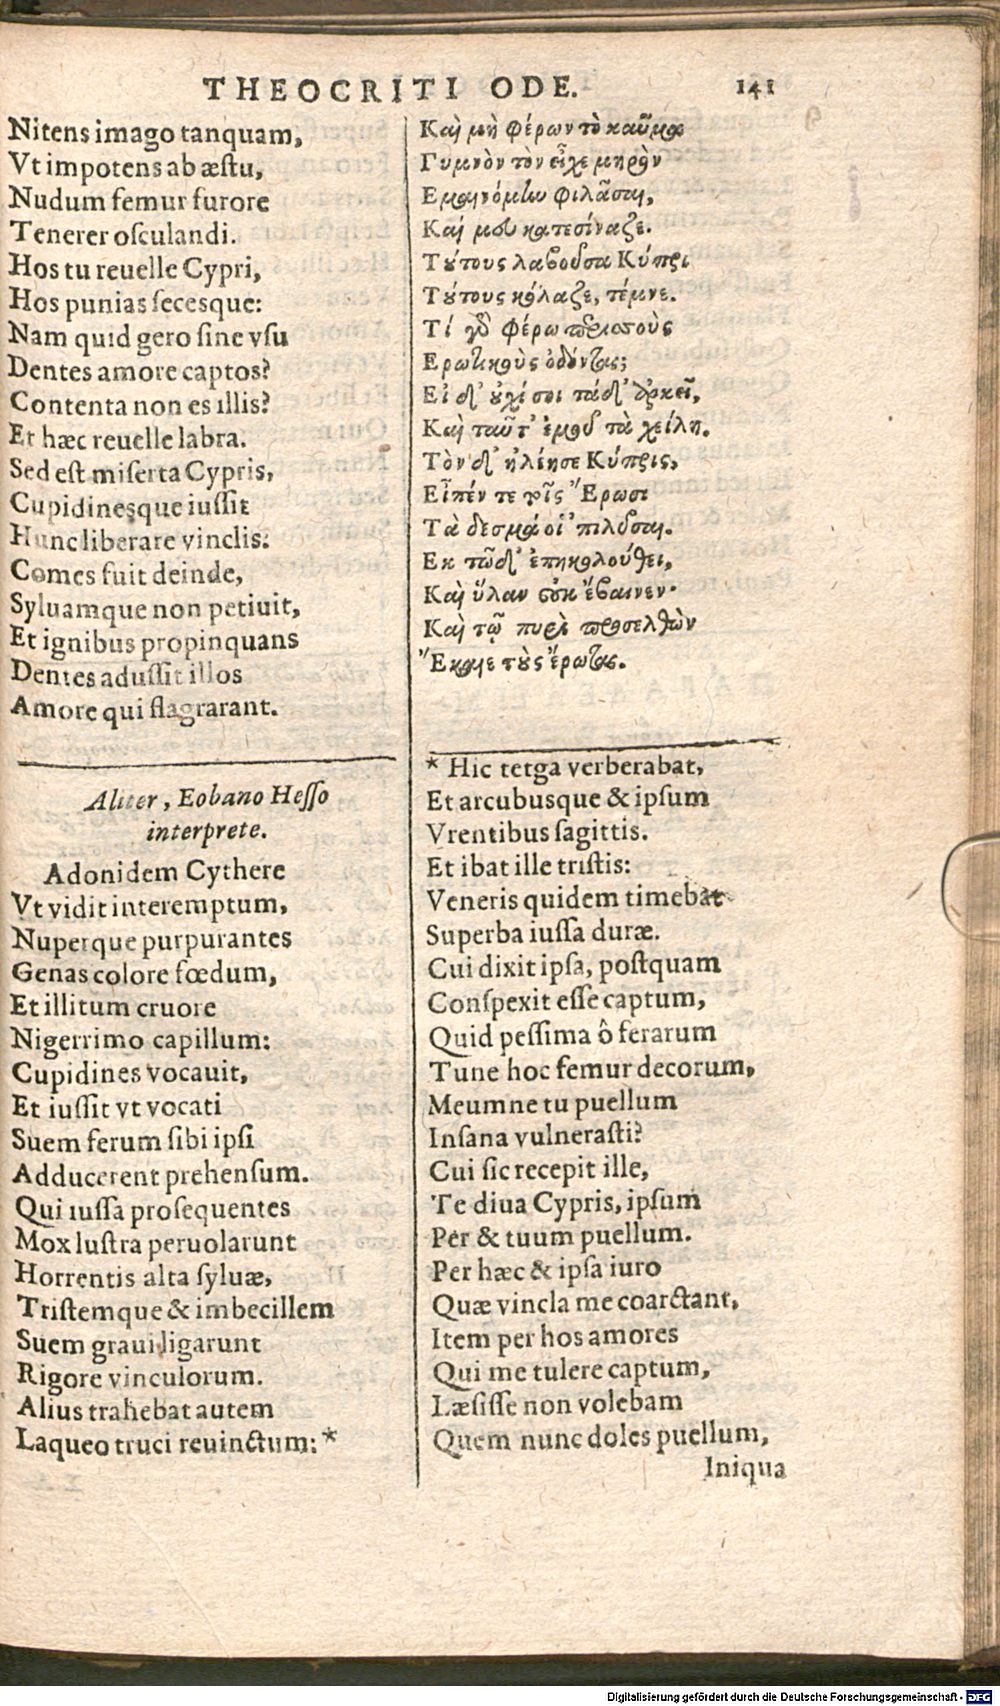 THEOCRITI ODE. 141
Nitens imago tanquam,
Vt impotens ab æstu,
Nudum femur furore
Tenerer osculandi.
Hos tu reuelle Cypri,
Hos punias secesque:
Nam quid gero sine vsu
Dentes amore captos?
Contenta non es illis?
Et hæc reuelle labra.
Sed est miserta Cypris,
Cupidinesque iussit
Hunc liberare vinclis:
Comes fuit deinde,
Syluamque non petiuit,
Et ignibus propinquans
Dentes adussit illos
Amore qui flagrarant.
Καὶ μὴ φέρων τὸ καῦμα
Γυμνὸν τὸν εἶχε μηρὸν
Εμαινόμην φιλᾶσαι,
Καί μου κατεσίναζε.
Τούτους λαβοῦσα Κύπρι
Τούτους κόλαζε, τέμνε.
Τί γὰρ φέρω περισσοὺς
Ερωτικοὺς ὀδόντας;
Εἰ δ' οὐχί σοι τάδ' ἀρκεῖ,
Καὶ ταῦτ' ἐμοῦ τὰ χείλη.
Τὸν δ' ἠλέησε Κύπρις,
Εἶπέν τε τοῖς Ἔρωσι
Τὰ δεσμά οἱ 'πιλῦσαι.
Εκ τῶδ' ἐπηκολούθει,
Καὶ ὕλαν οὐκ ἔβαινεν·
Καὶ τῷ πυρὶ προσελθὼν
Ἔκαιε τοὺς ἔρωτας.
Aliter, Eobano Hesso
interprete.
Adonidem Cythere
Vt vidit interemptum,
Nuperque purpurantes
Genas colore fœdum,
Et illitum cruore
Nigerrimo capillum:
Cupidines vocauit,
Et iussit vt vocati
Suem ferum sibi ipsi
Adducerent prehensum.
Qui iussa prosequentes
Mox lustra peruolarunt
Horrentis alta syluæ,
Tristemque & imbecillem
Suem graui ligarunt
Rigore vinculorum.
Alius trahebat autem
Laqueo truci reuinctum: *
* Hic tetga verberabat,
Et arcubusque & ipsum
Vrentibus sagittis.
Et ibat ille tristis:
Veneris quidem timebat
Superba iussa duræ.
Cui dixit ipsa, postquam
Conspexit esse captum,
Quid pessima ô ferarum
Tune hoc femur decorum,
Meumne tu puellum
Insana vulnerasti?
Cui sic recepit ille,
Te diua Cypris, ipsum
Per & tuum puellum.
Per hæc & ipsa iuro
Quæ vincla me coarctant,
Item per hos amores
Qui me tulere captum,
Læsisse non volebam
Quem nunc doles puellum,
Iniqua
Digitalisierung gefördert durch die Deutsche Forschungsgemeinschaft - DFG